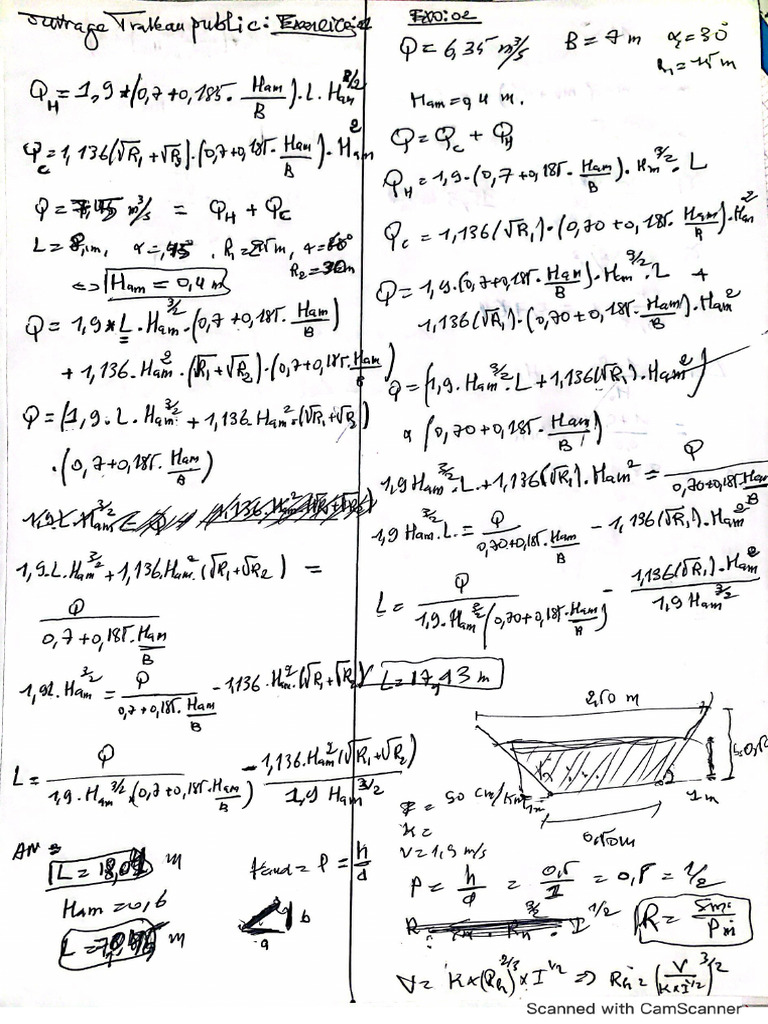 public : Exercice
Q_H = 1,9 * (0,7 + 0,185 . Ham/B) . L . Ham^3/2
Q_C = 1,136 (√R1 + √R2) . (0,7 + 0,185 . Ham/B) . Ham^2
Q = m³/s = Q_H + Q_C
L = m, α = 45°, R1 = m,
R2 = 30m
<=> Ham = 0,4 m
Q = 1,9 * L . Ham^3/2 . (0,7 + 0,185 . Ham/B)
+ 1,136 . Ham^2 . (√R1 + √R2) . (0,7 + 0,185 . Ham/B)
Q = (1,9 . L . Ham^3/2 + 1,136 . Ham^2 . (√R1 + √R2)
. (0,7 + 0,185 . Ham/B)
1,9 . L . Ham^3/2 + 1,136 . Ham^2 (√R1 + √R2) =
Q / 0,7 + 0,185 . Ham/B
1,9L . Ham^3/2 = Q / 0,7 + 0,185 . Ham/B - 1,136 . Ham^2 . (√R1 + √R2)
L = Q / 1,9 . Ham^3/2 . (0,7 + 0,185 . Ham/B) - 1,136 . Ham^2 (√R1 + √R2) / 1,9 Ham^3/2
AN :
L = m
Ham = 0,6
L = m
tan α = P = h/d
b
a
Exo : 02
Q = 6,35 m³/s B = 7 m α = 30°
R1 = 15 m
Ham = 0,4 m.
Q = Q_C + Q_H
Q_H = 1,9 . (0,7 + 0,185 . Ham/B) . Hm^3/2 . L
Q_C = 1,136 (√R1) . (0,70 + 0,185 . Ham/B) . Ham^2
Q = 1,9 . (0,7 + 0,185 . Ham/B) . Ham^3/2 . L +
1,136 (√R1) . (0,70 + 0,185 . Ham/B) . Ham^2
Q = (1,9 . Ham^3/2 . L + 1,136 (√R1) . Ham^2)
x (0,70 + 0,185 . Ham/B)
1,9 Ham^3/2 . L + 1,136 (√R1) . Ham^2 = Q / 0,70 + 0,185 . Ham/B
1,9 Ham^3/2 . L = Q / 0,70 + 0,185 . Ham/B - 1,136 (√R1) . Ham^2
L = Q / 1,9 . Ham^3/2 (0,70 + 0,185 . Ham/B) - 1,136 (√R1) . Ham^2 / 1,9 Ham^3/2
L = 17,43 m
2,50 m
1m
0,50m
= 50 cm/km
K =
V = 1,5 m/s
P = h/d = 0,5/1 = 0,5 = 1/2
R = Sm / Pm
V = K x (Rh)^2/3 x I^1/2 => Rh = (V / K x I^1/2)^3/2
Scanned with CamScanner